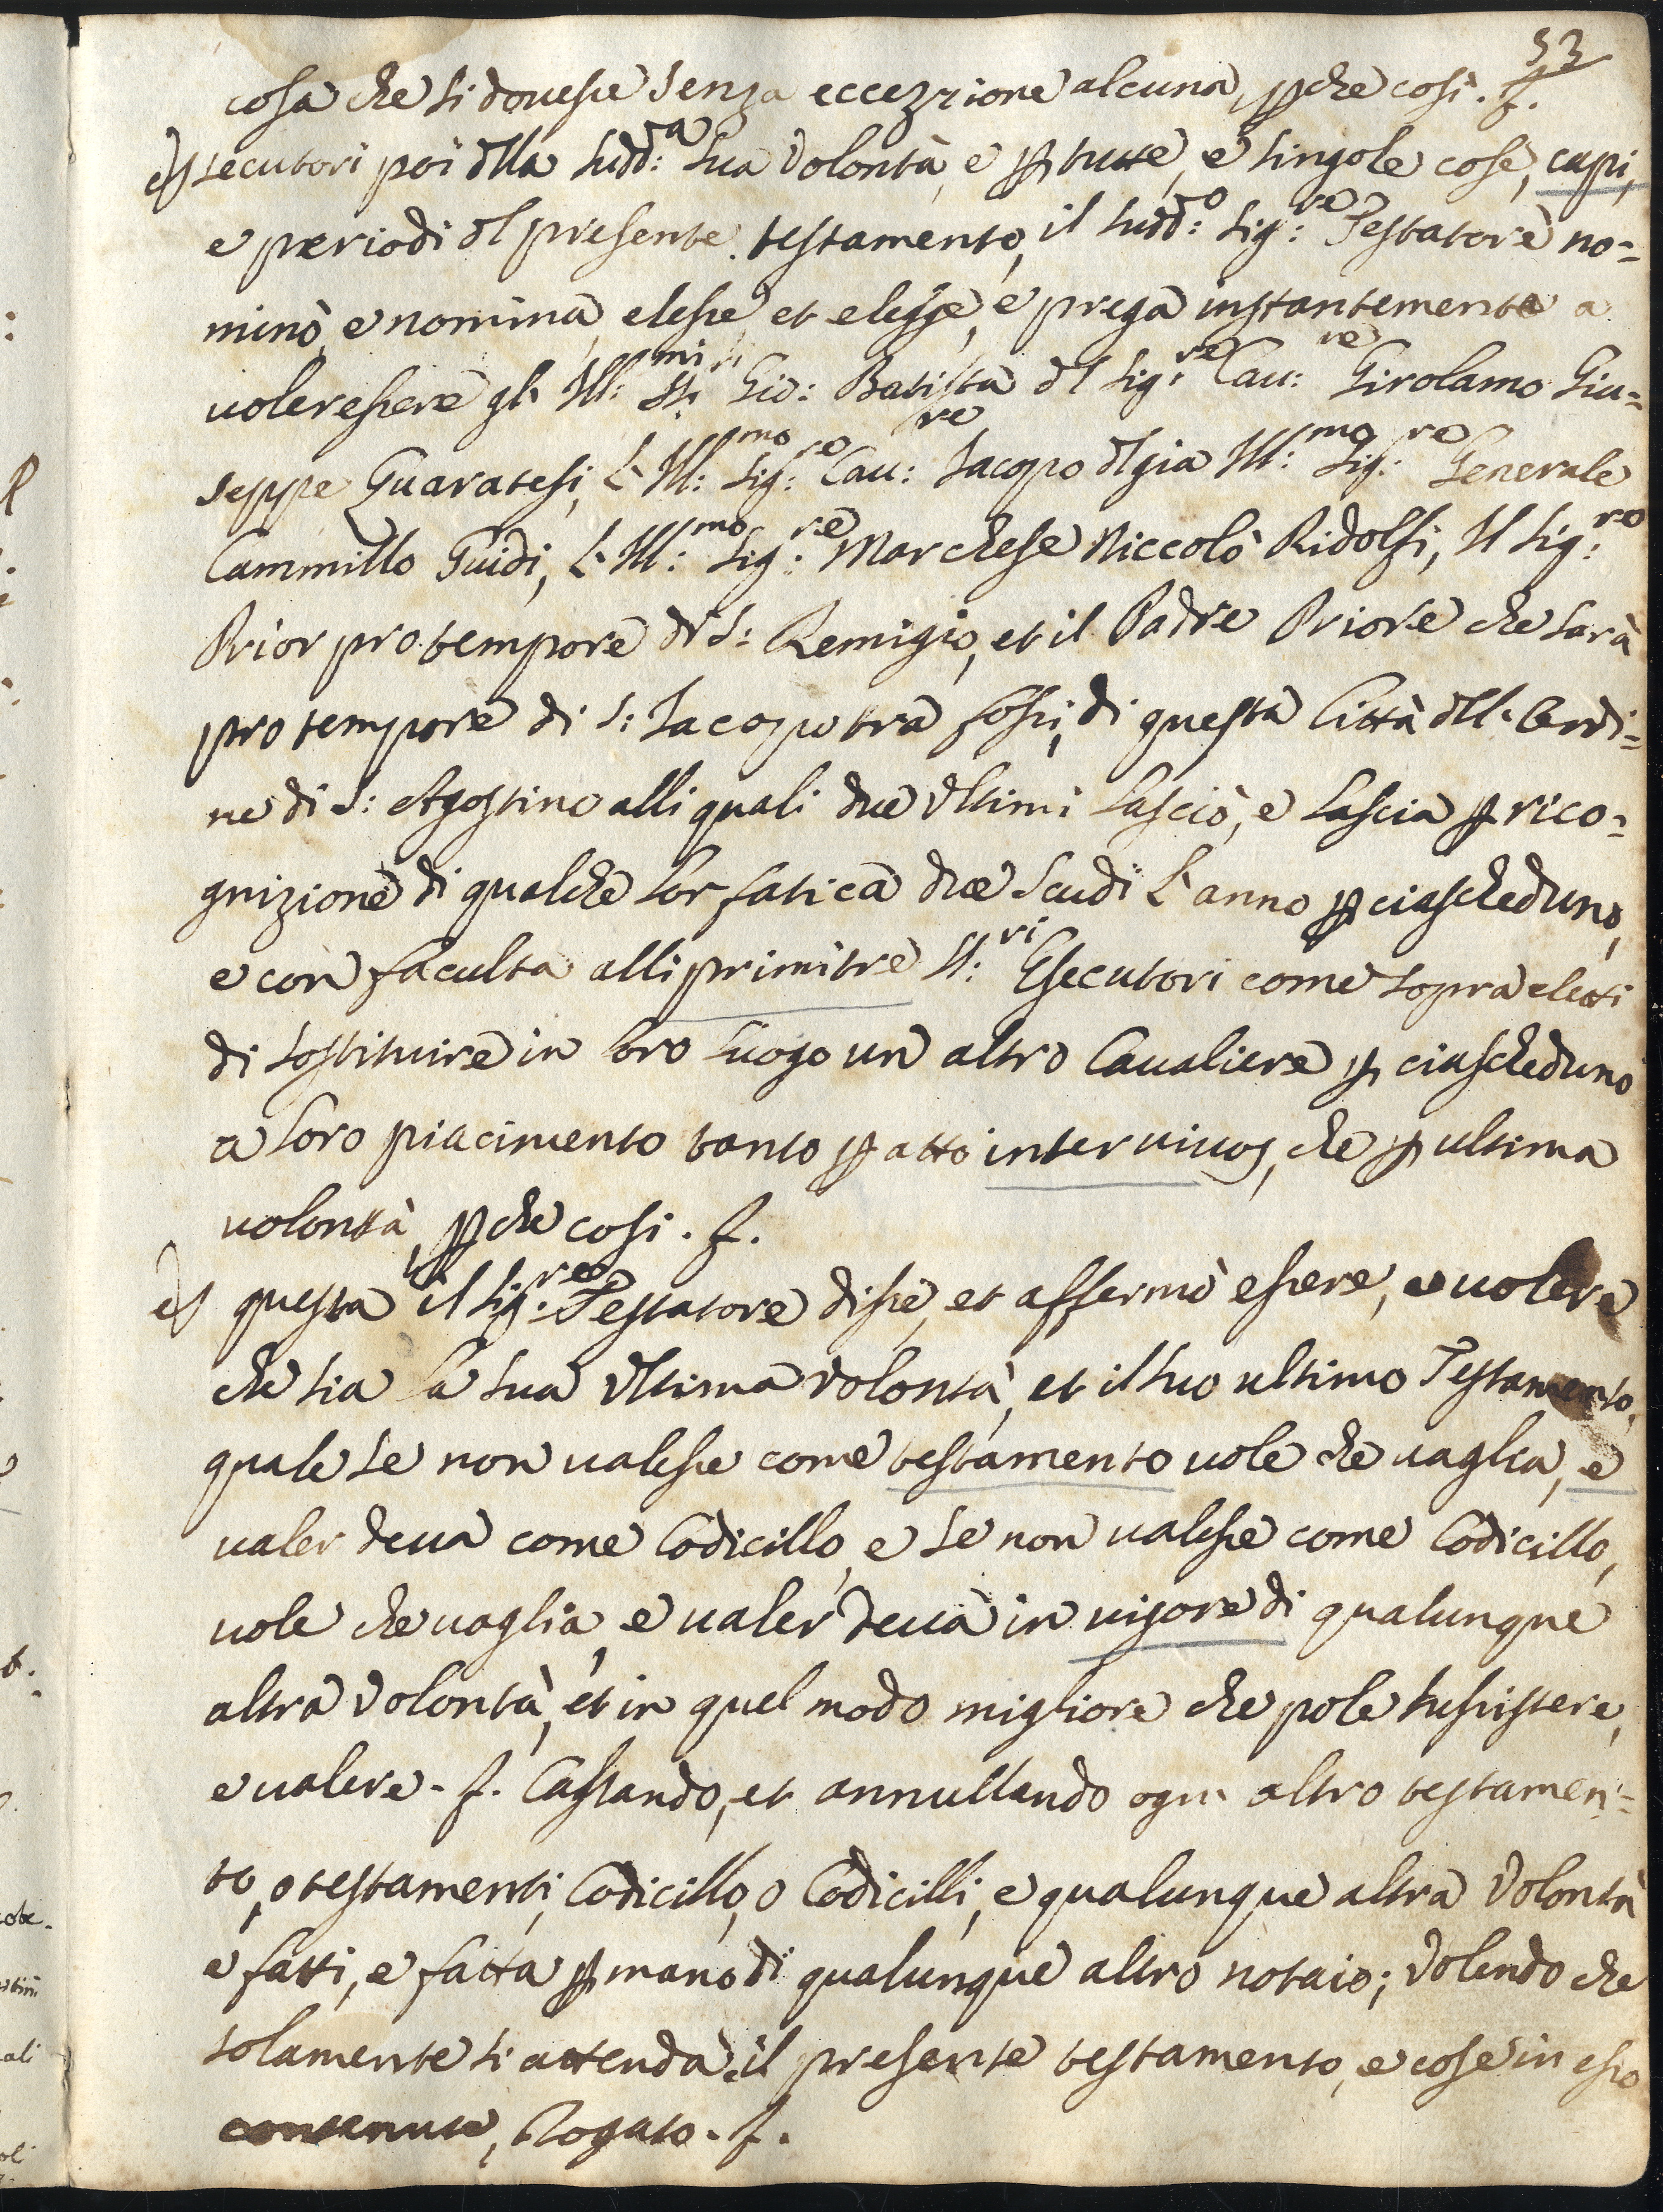 53
cosa che si douesse senza eccezzione alcuna, pche così. f.
Esecutori poi dlla sudd:ta sua Volontà, e p tutte, e singole cose, capi,
e periodi dl presente testamento, il sudd:o Sig:re Testatore no=
minò, e nomina, elesse, et elegge, e prega instantemente a
uoler essere gl'Ill:mi SS:ri Gio: Batista dl Sig:re Cau:re Girolamo Giu=
seppe Guaratesi, L'Ill:mo Sig:re Cau:re Iacopo dl già Ill:mo Sig:re Generale
Cammillo Guidi, L'Ill:mo Sig:re Marchese Niccolò Ridolfi, Il Sig:re
Prior pro tempore di S: Remigio, et il Padre Priore che sarà
pro tempore di S: Iacopo tra fossi, di questa Città dll'Ordi=
ne di S: Agostino alli quali due Vltimi lasciò, e lascia p rico=
gnizione di qualche lor fatica due Scudi L'anno p ciascheduno,
e con faculta alli primi tre SS:ri Esecutori come sopra eletti
di sostituire in loro luogo un altro Caualiere p ciascheduno
a loro piacimento tanto p atto inter uiuos, che p ultima
uolontà, pche cosi. f.
E questa il Sig:re Testatore disse, et affermò essere, e uolere
che sia la sua Vltima Volontà, et il suo ultimo Testamento,
quale se non ualesse come testamento uole che uaglia, e
ualer deua come Codicillo, e se non ualesse come Codicillo,
uole che uaglia, e ualer deua in uigore di qualunque
altra Volontà, et in quel modo migliore che pole sussistere,
e ualere. f. Cassando, et annullando ogni altro testamen=
to, o testamenti, Codicillo, o Codicilli, e qualunque altra Volontà
e fatti, e fatta p mano di qualunque altro notaio; Volendo che
solamente si attenda il presente testamento, e cose in esso
contenute, Rogato. f.